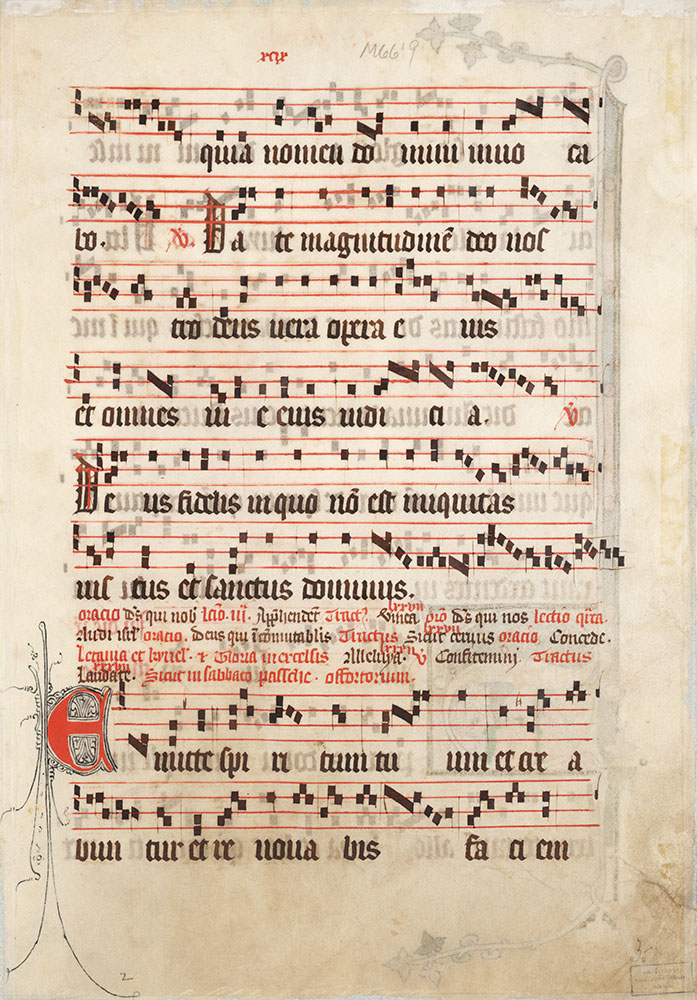 xcix
M66:9
quia nomen do mini invo ca
bo. V. Da te magnitudinē deo nos
tro deus vera opera e ius
et omnes vi e eius iudi ci a. V
De us fidelis in quo nō est iniquitas
ius tus et sanctus dominus.
oracio ds qui nob lcio. iii. Apphendet Tract Vinea ds qui nos lectio
oracio. Deus qui Tractus Sicut cervus oracio. Concede.
Letania et kyriel. & Gloria in excelsis Alleluya. V Confitemini Tractus
Laudate. Sicut in sabbato offertorium.
Emitte spi ri tum tu um et cre a
bun tur et re nova bis fa ci em
2